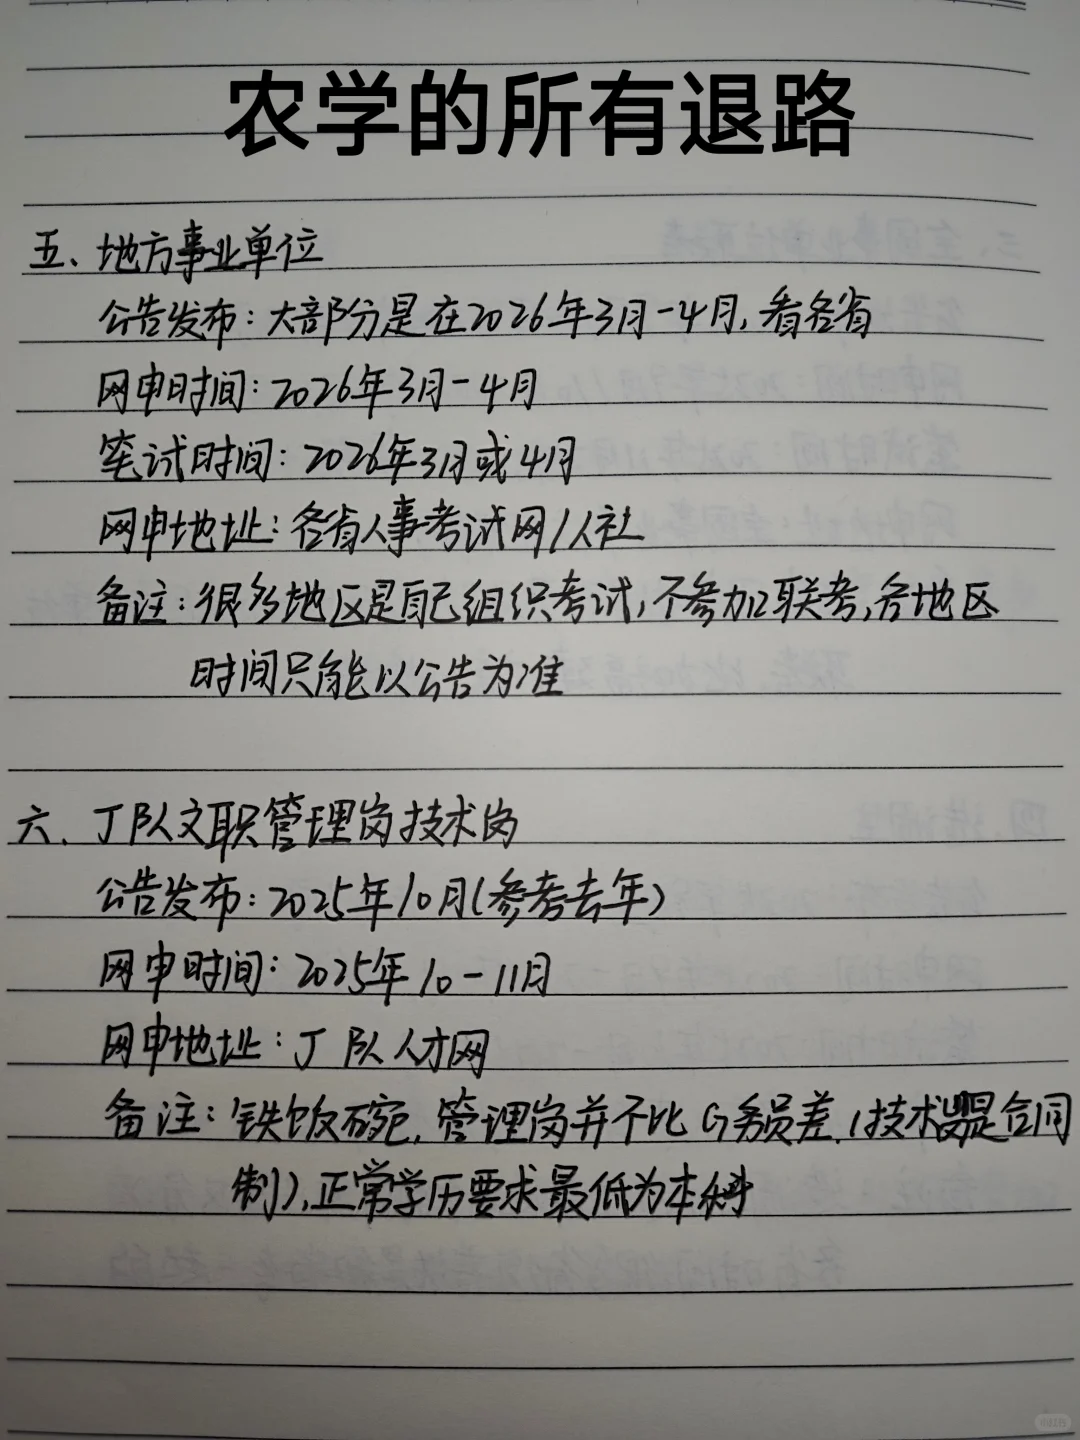 农学的所有退路
五、地方事业单位
公告发布:大部分是在2026年3月-4月,看各省
网申时间:2026年3月-4月
笔试时间:2026年3月或4月
网申地址:各省人事考试网/人社
备注:很多地区是自己组织考试,不参加联考,各地区
时间只能以公告为准
六、J队文职管理岗技术岗
公告发布:2025年10月(参考去年)
网申时间:2025年10-11月
网申地址:J队人才网
备注:铁饭碗,管理岗并不比G务员差,(技术岗是合同
制),正常学历要求最低为本科
小红书